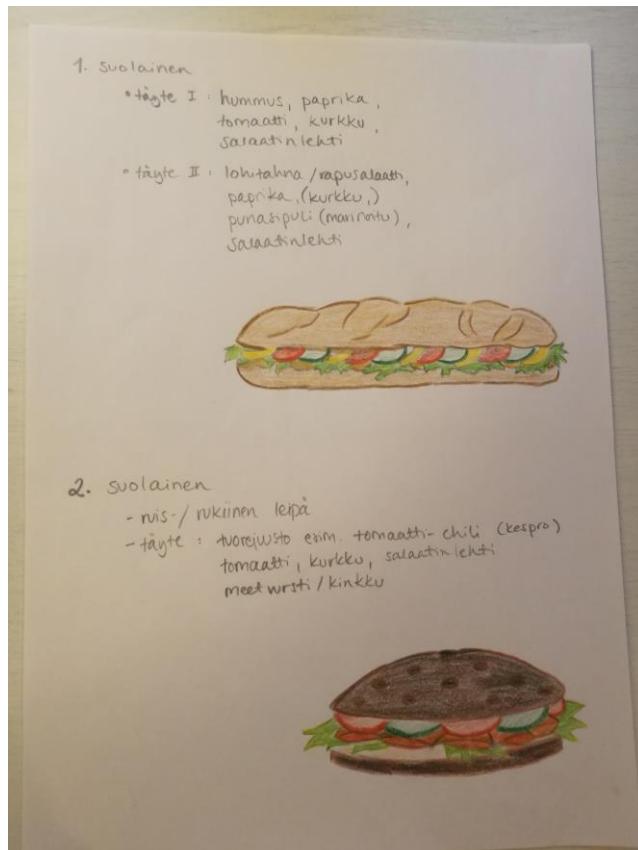 1. suolainen
• täyte I : hummus, paprika,
tomaatti, kurkku,
salaatinlehti
• täyte II : lohitahna / rapusalaatti,
paprika, (kurkku,)
punasipuli (marinoitu),
salaatinlehti
2. suolainen
- ruis- / rukiinen leipä
- täyte : tuorejuusto esim. tomaatti-chili (kespro)
tomaatti, kurkku, salaatinlehti
meetwursti / kinkku